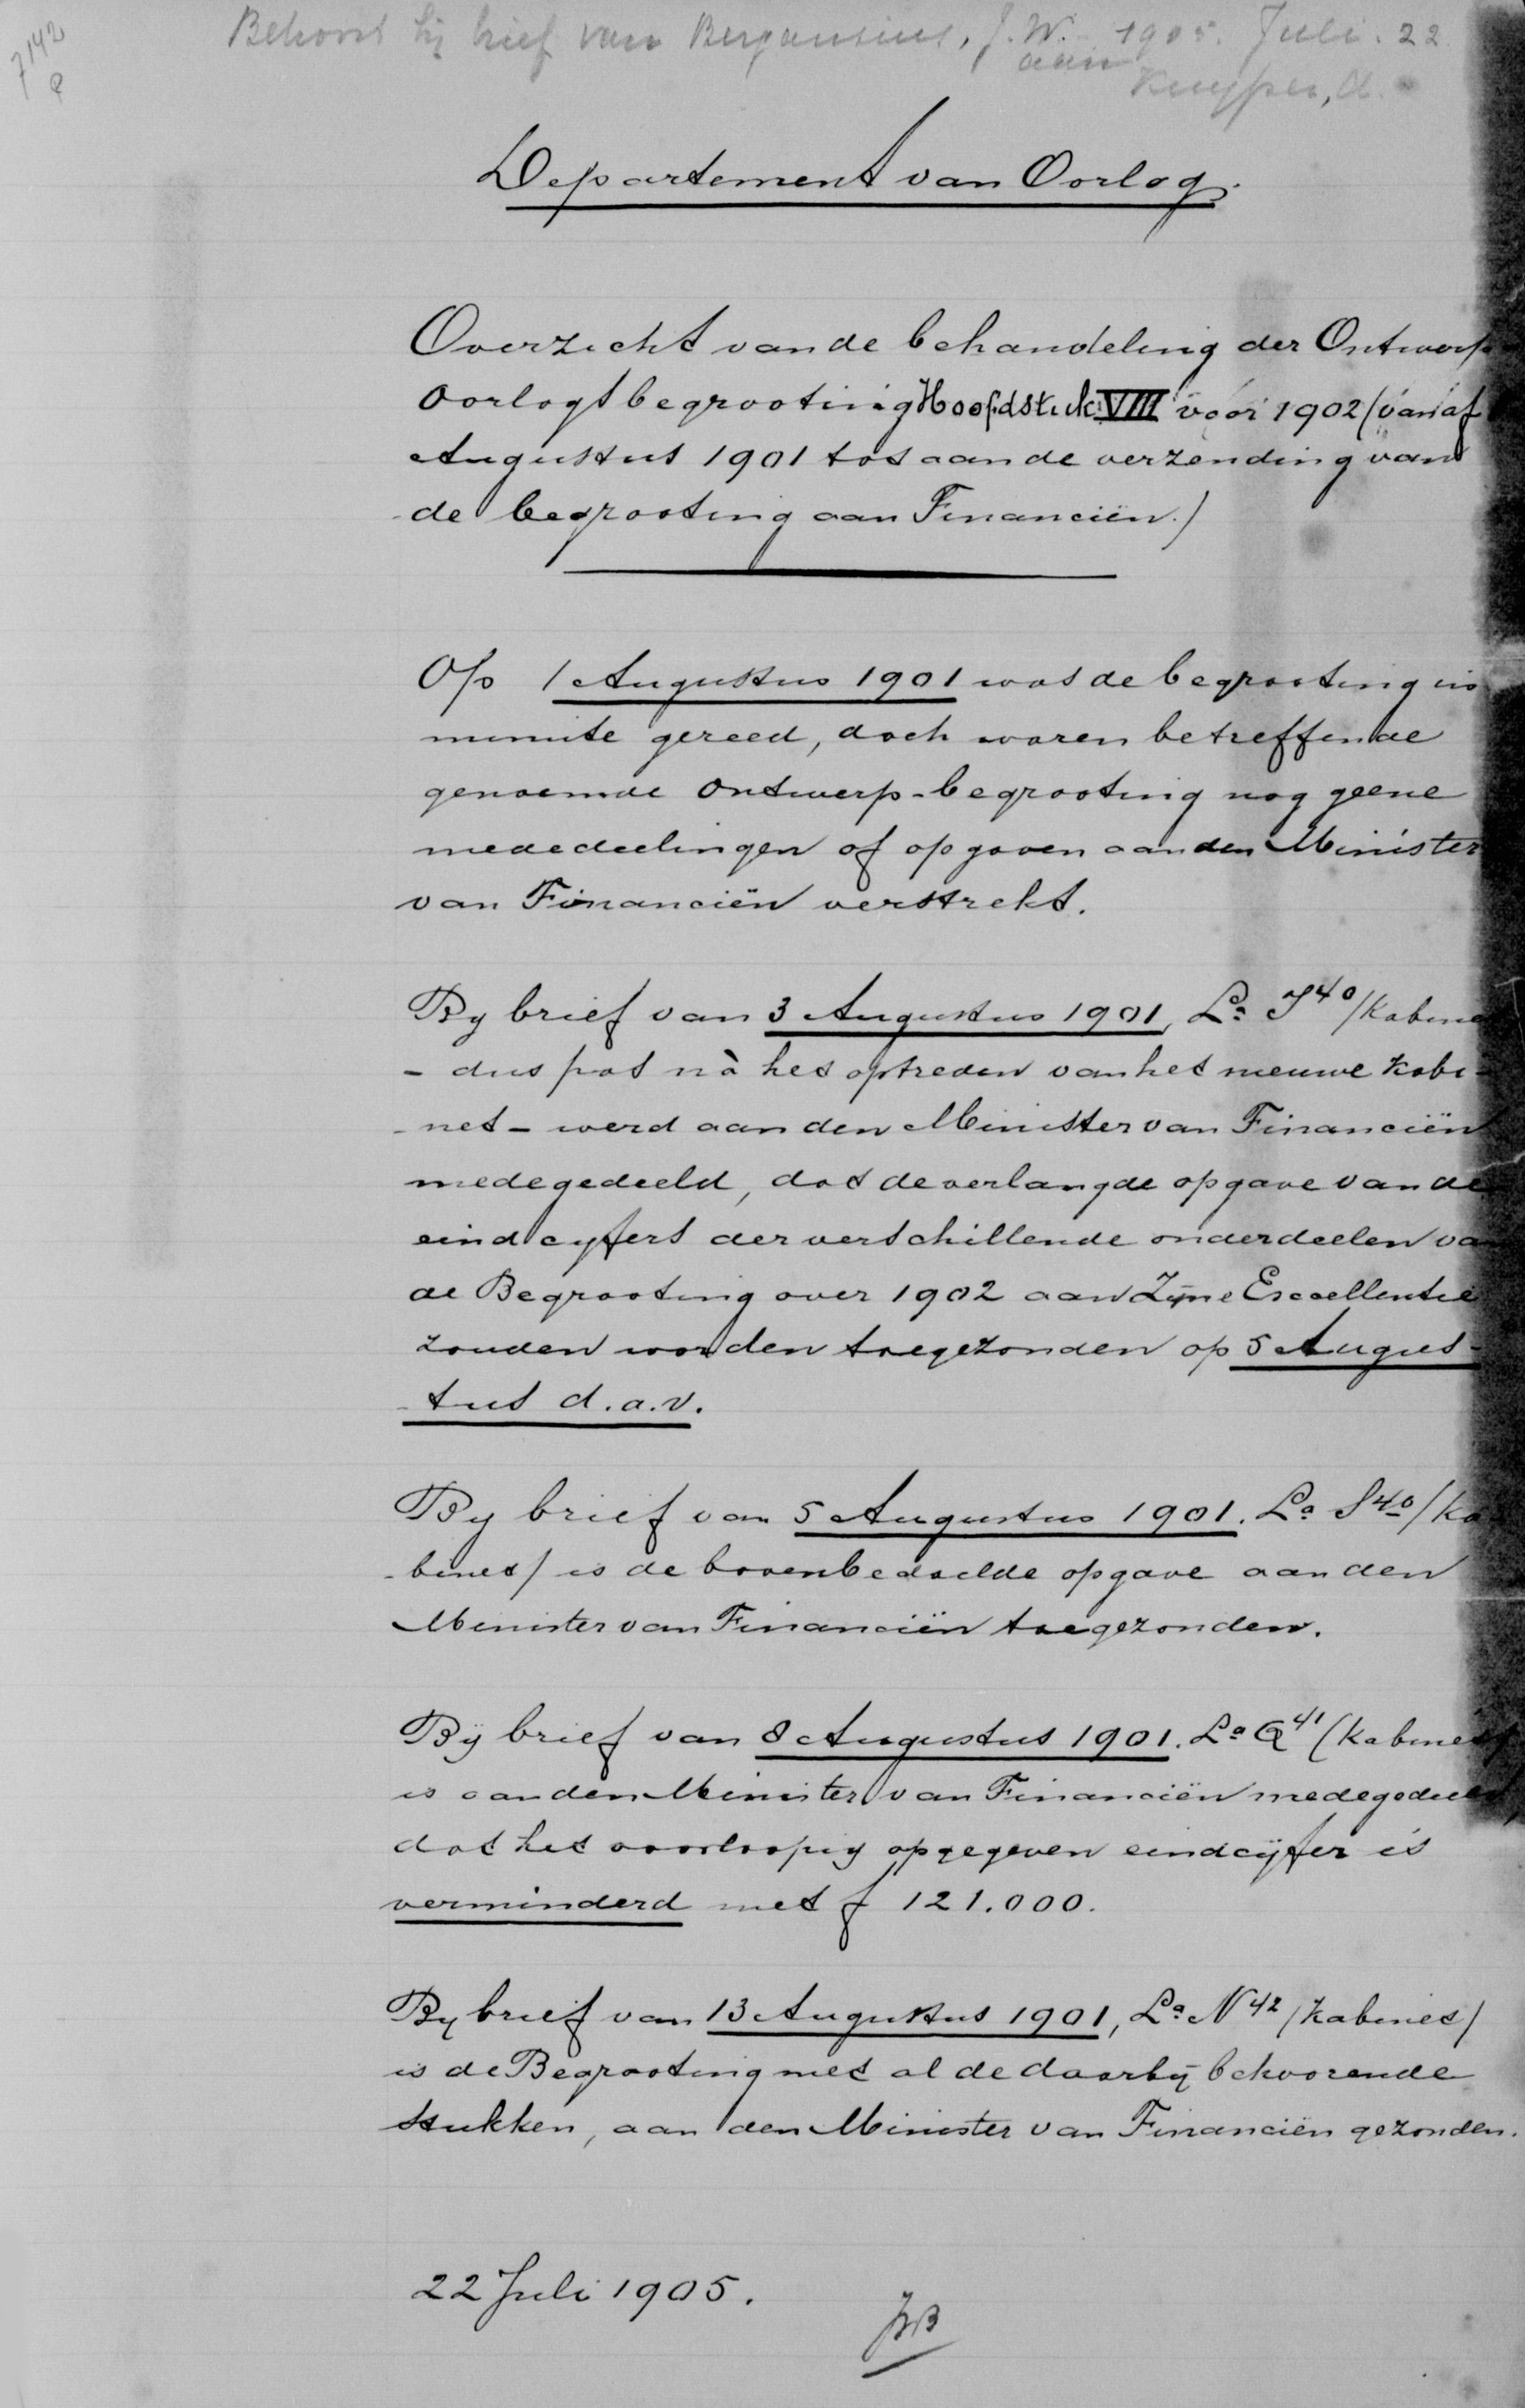 7142
Behoort bij brief van Bergansius, J.W. 1905. Juli. 22
aan
Kuyper, A.
Departement van Oorlog.
Overzicht van de behandeling der Ontwerp-
Oorlogsbegrooting Hoofdstuk VIII voor 1902 (vanaf
Augustus 1901 tot aan de verzending van
de begrooting aan Financiën.)
Op 1 Augustus 1901 was de begrooting in
minute gereed, doch waren betreffende
genoemde Ontwerp-begrooting nog geene
mededeelingen of opgaven aan den Minister
van Financiën verstrekt.
By brief van 3 Augustus 1901, La
- dus pas nà het optreden van het nieuwe Kabi-
net - werd aan den Minister van Financiën
medegedeeld, dat de verlangde opgave van de
eindcyfers der verschillende onderdeelen van
de Begrooting over 1902 aan Zijne Excellentie
zouden worden toegezonden op 5 Augus-
tus d.a.v.
By brief van 5 Augustus 1901. La S 40 /Ka-
binet/ is de bovenbedoelde opgave aan den
Minister van Financiën toegezonden.
Bij brief van 8 Augustus 1901. La Q 41 (Kabinet)
is aan den Minister van Financiën medegedeeld,
dat het voorloopig opgegeven eindcijfer is
verminderd met f 121.000.
By brief van 13 Augustus 1901, La N 42 /Kabinet/
is de Begrooting met al de daarbij behoorende
stukken, aan den Minister van Financiën gezonden.
22 Juli 1905.